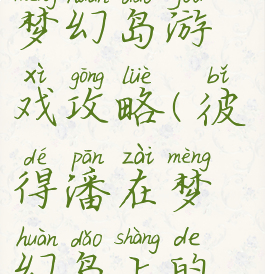 mèng huàn dǎo yóu
梦幻岛游
xì gōng lüè bǐ
戏攻略(彼
dé pān zài mèng
得潘在梦
huàn dǎo shàng de
幻岛上的